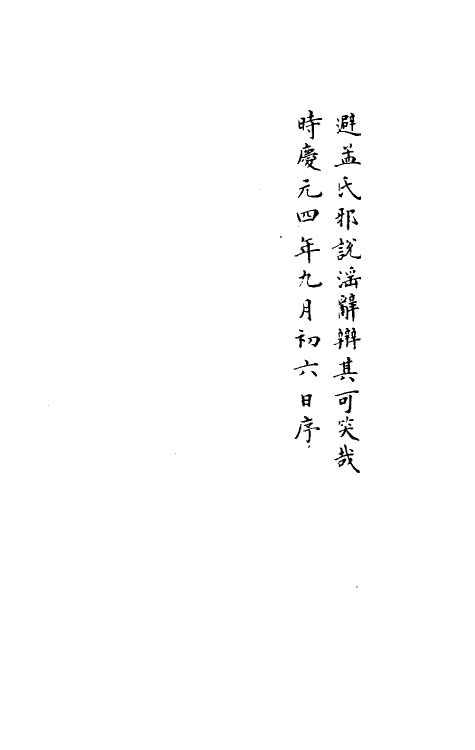 避孟氏邪說滛辭辯其可笑哉
時慶元四年九月初六日序